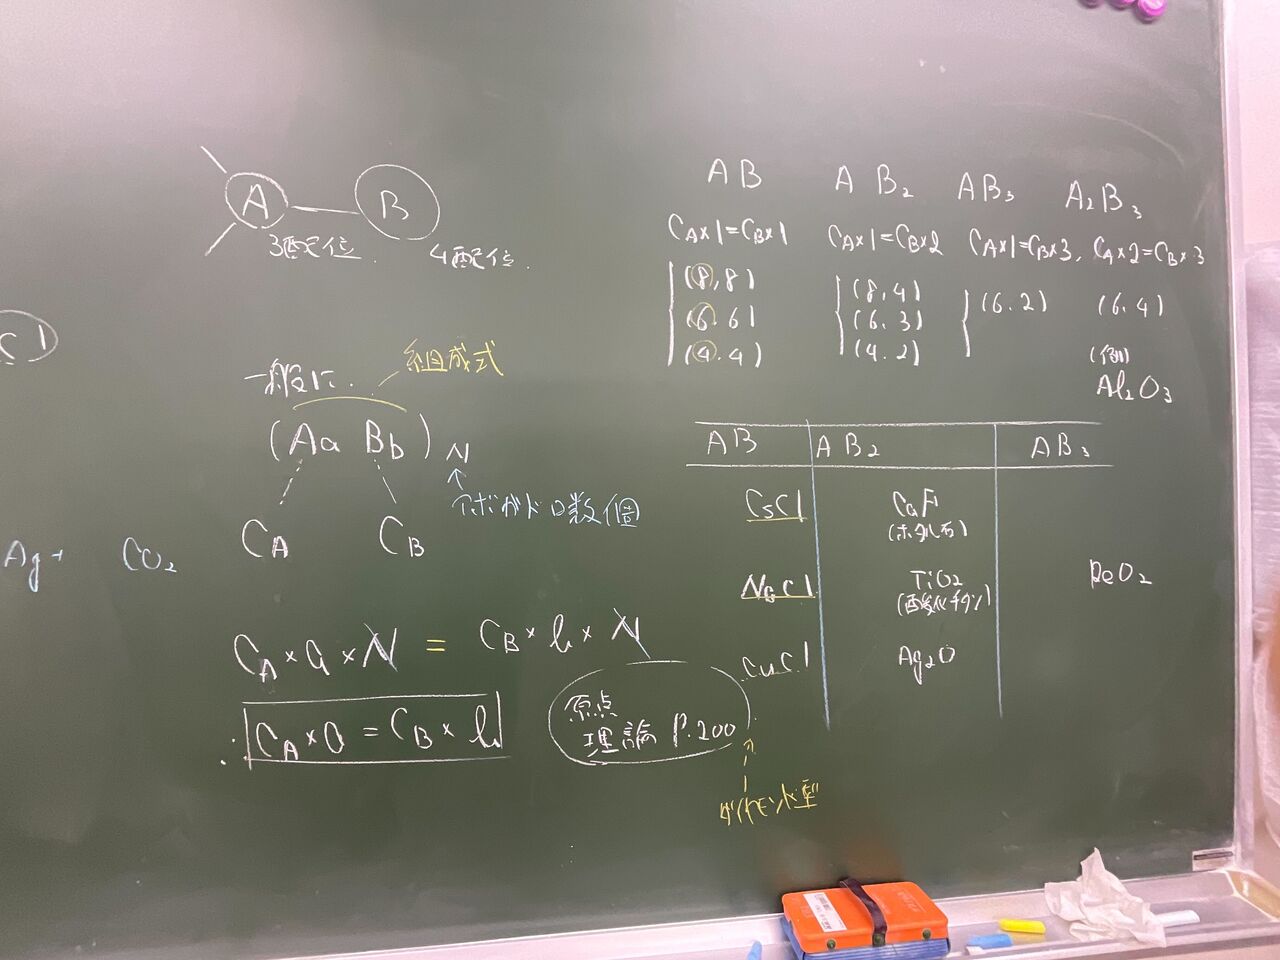 A
B
3配位
4配位.
一般に.
組成式
(Aa Bb)N
↑
アボガドロ数個
CA
CB
Ag+
CO2
CA×a×N = CB×b×N
∴ CA×a = CB×b
原点
理論 P.200
AB
AB2
AB3
A2B3
CA×1=CB×1
CA×1=CB×2
CA×1=CB×3,
CA×2=CB×3
(8,8)
(6.6)
(4.4)
(8.4)
(6.3)
(4.2)
(6.2)
(6.4)
(例)
Al2O3
AB
AB2
AB3
CsCl
CaF
(ホタル石)
NaCl
TiO2
(酸化チタン)
ReO2
CuCl
Ag2O
ダイヤモンド型